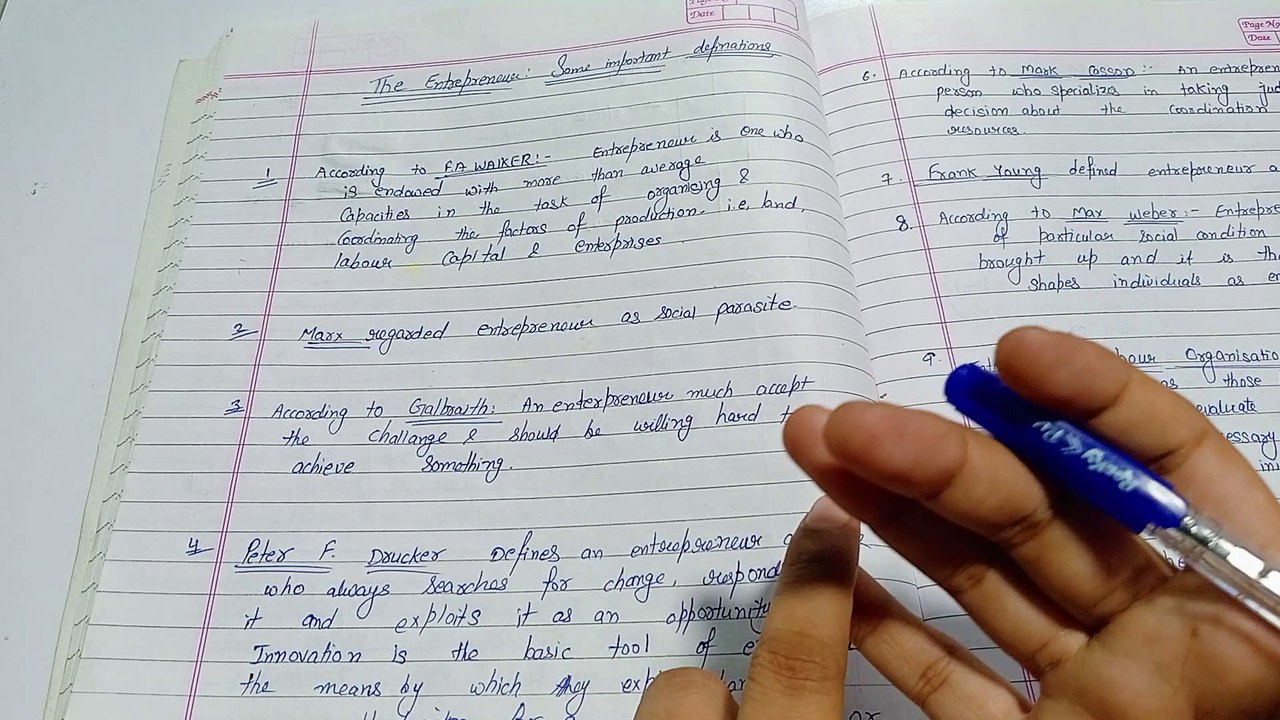 Date
The Entrepreneur: Some important definations
1 According to F.A WALKER:- Entrepreneur is one who
is endowed with more than average
Capacities in the task of organising &
Coordinating the factors of production. i.e, land,
labour capital & enterprises
2 Marx regarded entrepreneur as social parasite
3 According to Galbraith: An enterpreneur much accept
the challange & should be willing hard
achieve something.
4 Peter F. Drucker Defines an entrepreneur
who always searches for change, respond
it and exploits it as an opportunity
Innovation is the basic tool of
the means by which they
Page No
Date
6. According to Mark Casson:- An entrepren
person who specializes in taking
decision about the coordination
resources.
7. Frank Young defined entrepreneur
8. According to Max Weber:- Entrepre
of particular social condition
brought up and it is the
shapes individuals as
9. Organisatio
those
evaluate